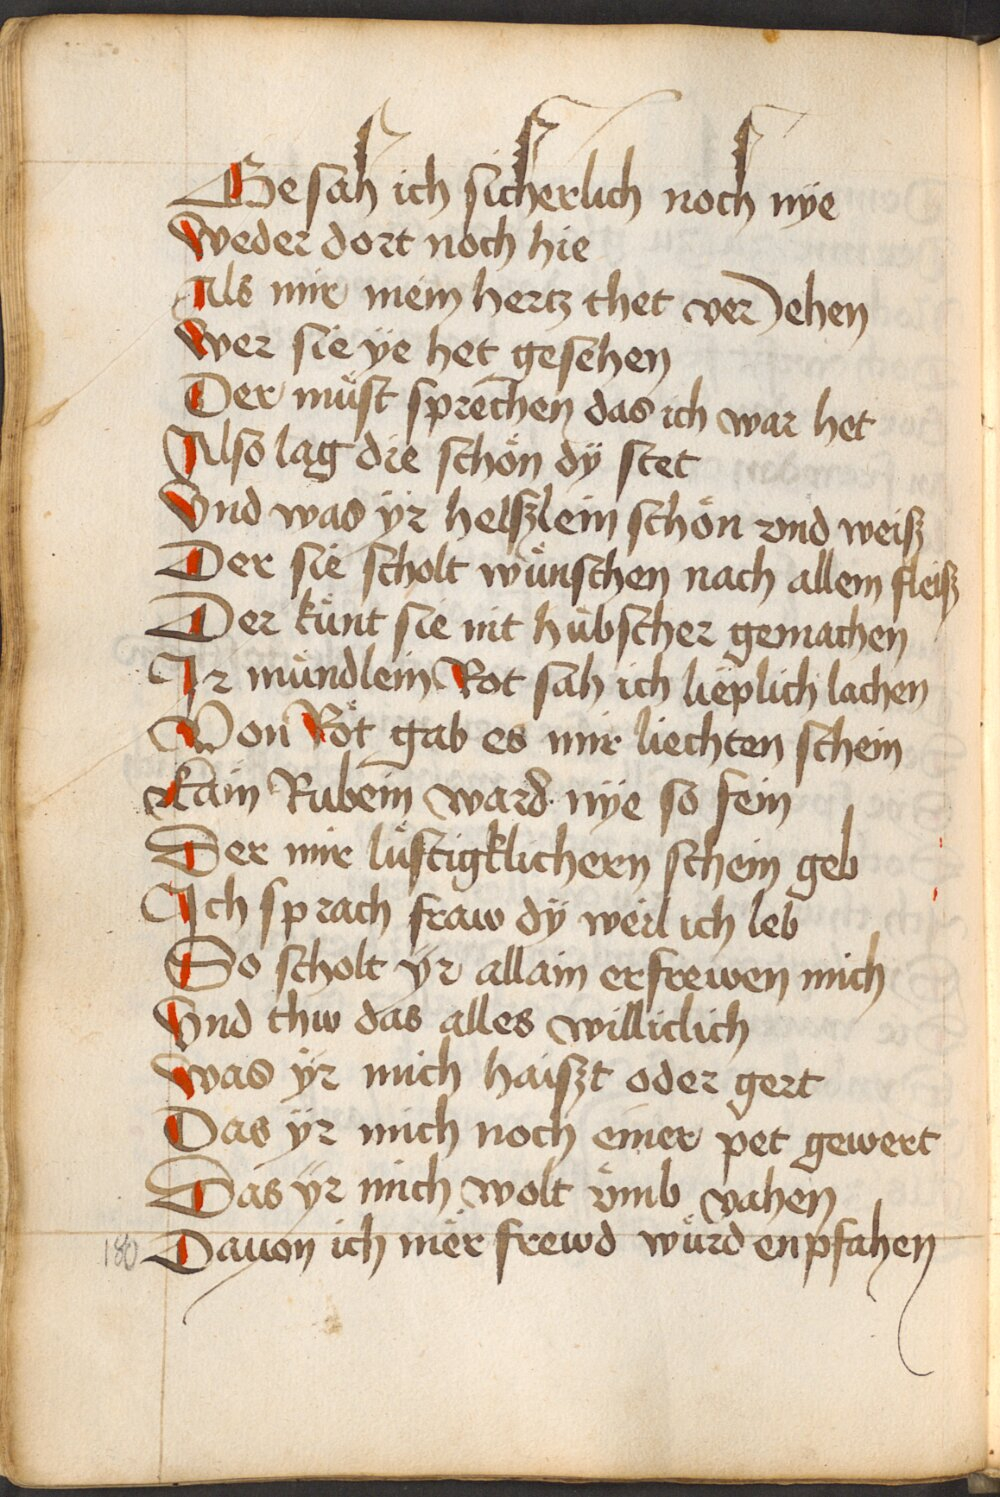 Gesah ich sicherlich noch nÿe
Weder dort noch hie
Als mir mein hertz thet verJehen
Wer sie ÿe het gesehen
Der müst sprechen das ich war het
Also lag die schön dÿ stet
Vnd was ÿr helszlein schön vnd weisz
Der sie scholt wünschen nach allem fleisz
Der künt sie nit hübscher gemachen
Ir mündlein Rot sah ich lieplich lachen
Von Röt gab es mir liechten schein
Kain Rubein ward nÿe so fein
Der mir lüstigklichern schein geb
Ich sprach fraw dÿ weil ich leb
So scholt ÿr allain erfrewen mich
Vnd thw das alles williclich
Was ÿr mich haiszt oder gert
Das ÿr mich noch einer pet gewert
Das ÿr mich wolt vmb vahen
180 Dauon ich mer frewd würd enpfahen